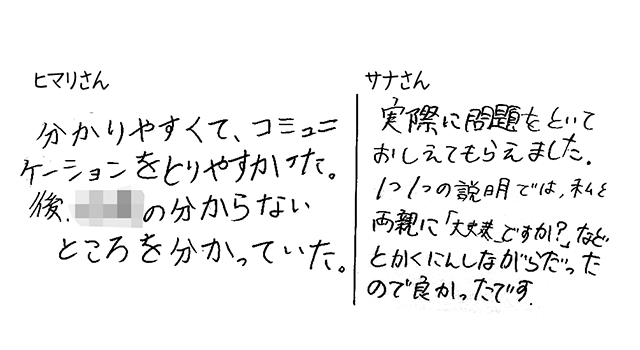 ヒマリさん
分かりやすくて、コミュニ
ケーションをとりやすかった。
後、の分からない
ところを分かっていた。
サナさん
実際に問題をといて
おしえてもらえました。
1つ1つの説明では、私と
両親に「大丈夫ですか?」など
とかくにんしながらだった
ので良かったです。